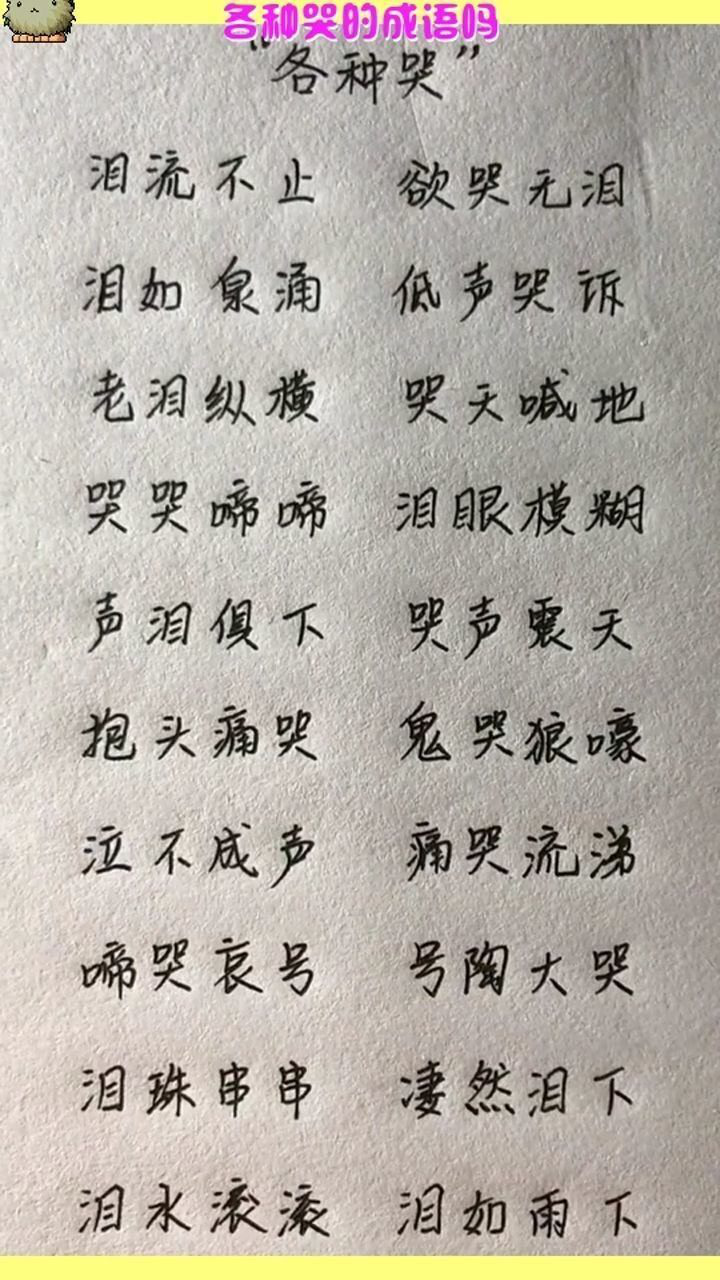 各种哭的成语吗
“各种哭”
泪流不止 欲哭无泪
泪如泉涌 低声哭诉
老泪纵横 哭天喊地
哭哭啼啼 泪眼模糊
声泪俱下 哭声震天
抱头痛哭 鬼哭狼嚎
泣不成声 痛哭流涕
啼哭哀号 号陶大哭
泪珠串串 凄然泪下
泪水滚滚 泪如雨下